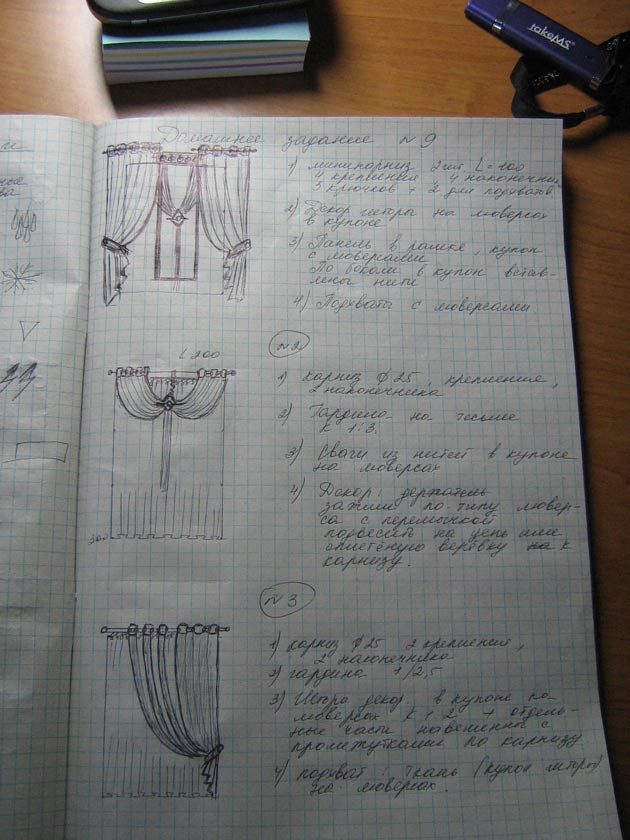 Домашнее задание N 9
1) миникарниз 2 шт L=100
4 крепления 4 наконечн
5 крючков + 2 для подхватов
2) Декор шторы на люверсах
в купоне
3) Панель в рамке, купон
с люверсами
По бокам в купон встав-
лены нити
4) Подхваты с люверсами
N2
L 200
1) карниз Ф 25, крепления,
2 наконечника
2) Гардина на тесьме
К 1:3.
3) Сваги из нитей в купоне
на люверсах
4) Декор: держатель
зажим по типу лювер-
са с перемычкой
подвесить на цепь или
оплетёную верёвку на к
карнизу.
N 3
1) карниз Ф 25 2 крепления,
2 наконечника
2) гардина 1/2,5
3) Штора декор. в купоне на
люверсах К 1:2 + отдель-
ные части навешаны с
промежутками по карнизу
4) подхват: ткань (купон шторы)
на люверсах.